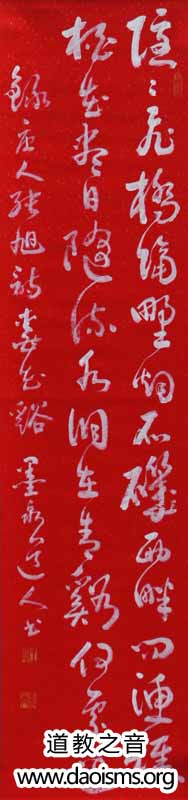 隱〻飛橋隔野烟石磯西畔問漁船
桃花盡日隨流水洞在清谿何處邊
錄唐人張旭詩桃花谿 墨泉道人書
道教之音
www.daoisms.org